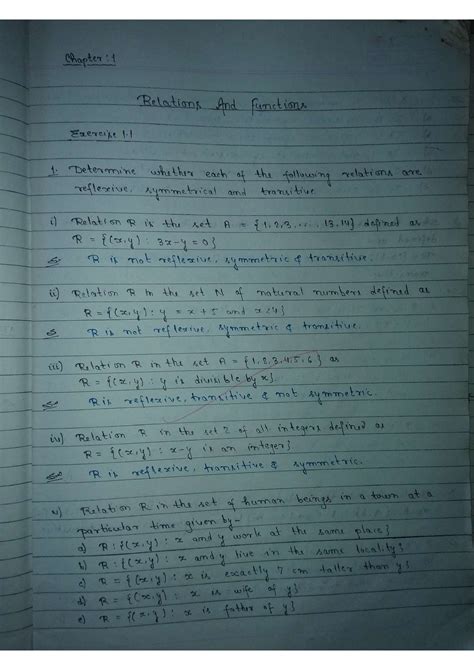 Chapter : 1
Relations And Functions
Exercise 1.1
1. Determine whether each of the following relations are
reflexive, symmetrical and transitive
i) Relation R is the set A = {1,2,3....., 13,14} defined as
R = {(x,y) : 3x-y = 0}
R is not reflexive, symmetric & transitive.
ii) Relation R in the set N of natural numbers defined as
R = {(x,y) : y = x + 5 and x<4}
R is not reflexive, symmetric & transitive.
iii) Relation R in the set A = {1,2,3,4,5,6} as
R = {(x,y) : y is divisible by x}
R is reflexive, transitive & not symmetric.
iv) Relation R in the set Z of all integers defined as
R = {(x,y) : x-y is an integer}
R is reflexive, transitive & symmetric.
v) Relation R in the set of human beings in a town at a
particular time given by-
a) R : {(x,y) : x and y work at the same place}
b) R : {(x,y) : x and y live in the same locality}
c) R = {(x,y) : x is exactly 7 cm taller than y}
d) R = {(x,y) : x is wife of y}
e) R = {(x,y) : x is father of y}